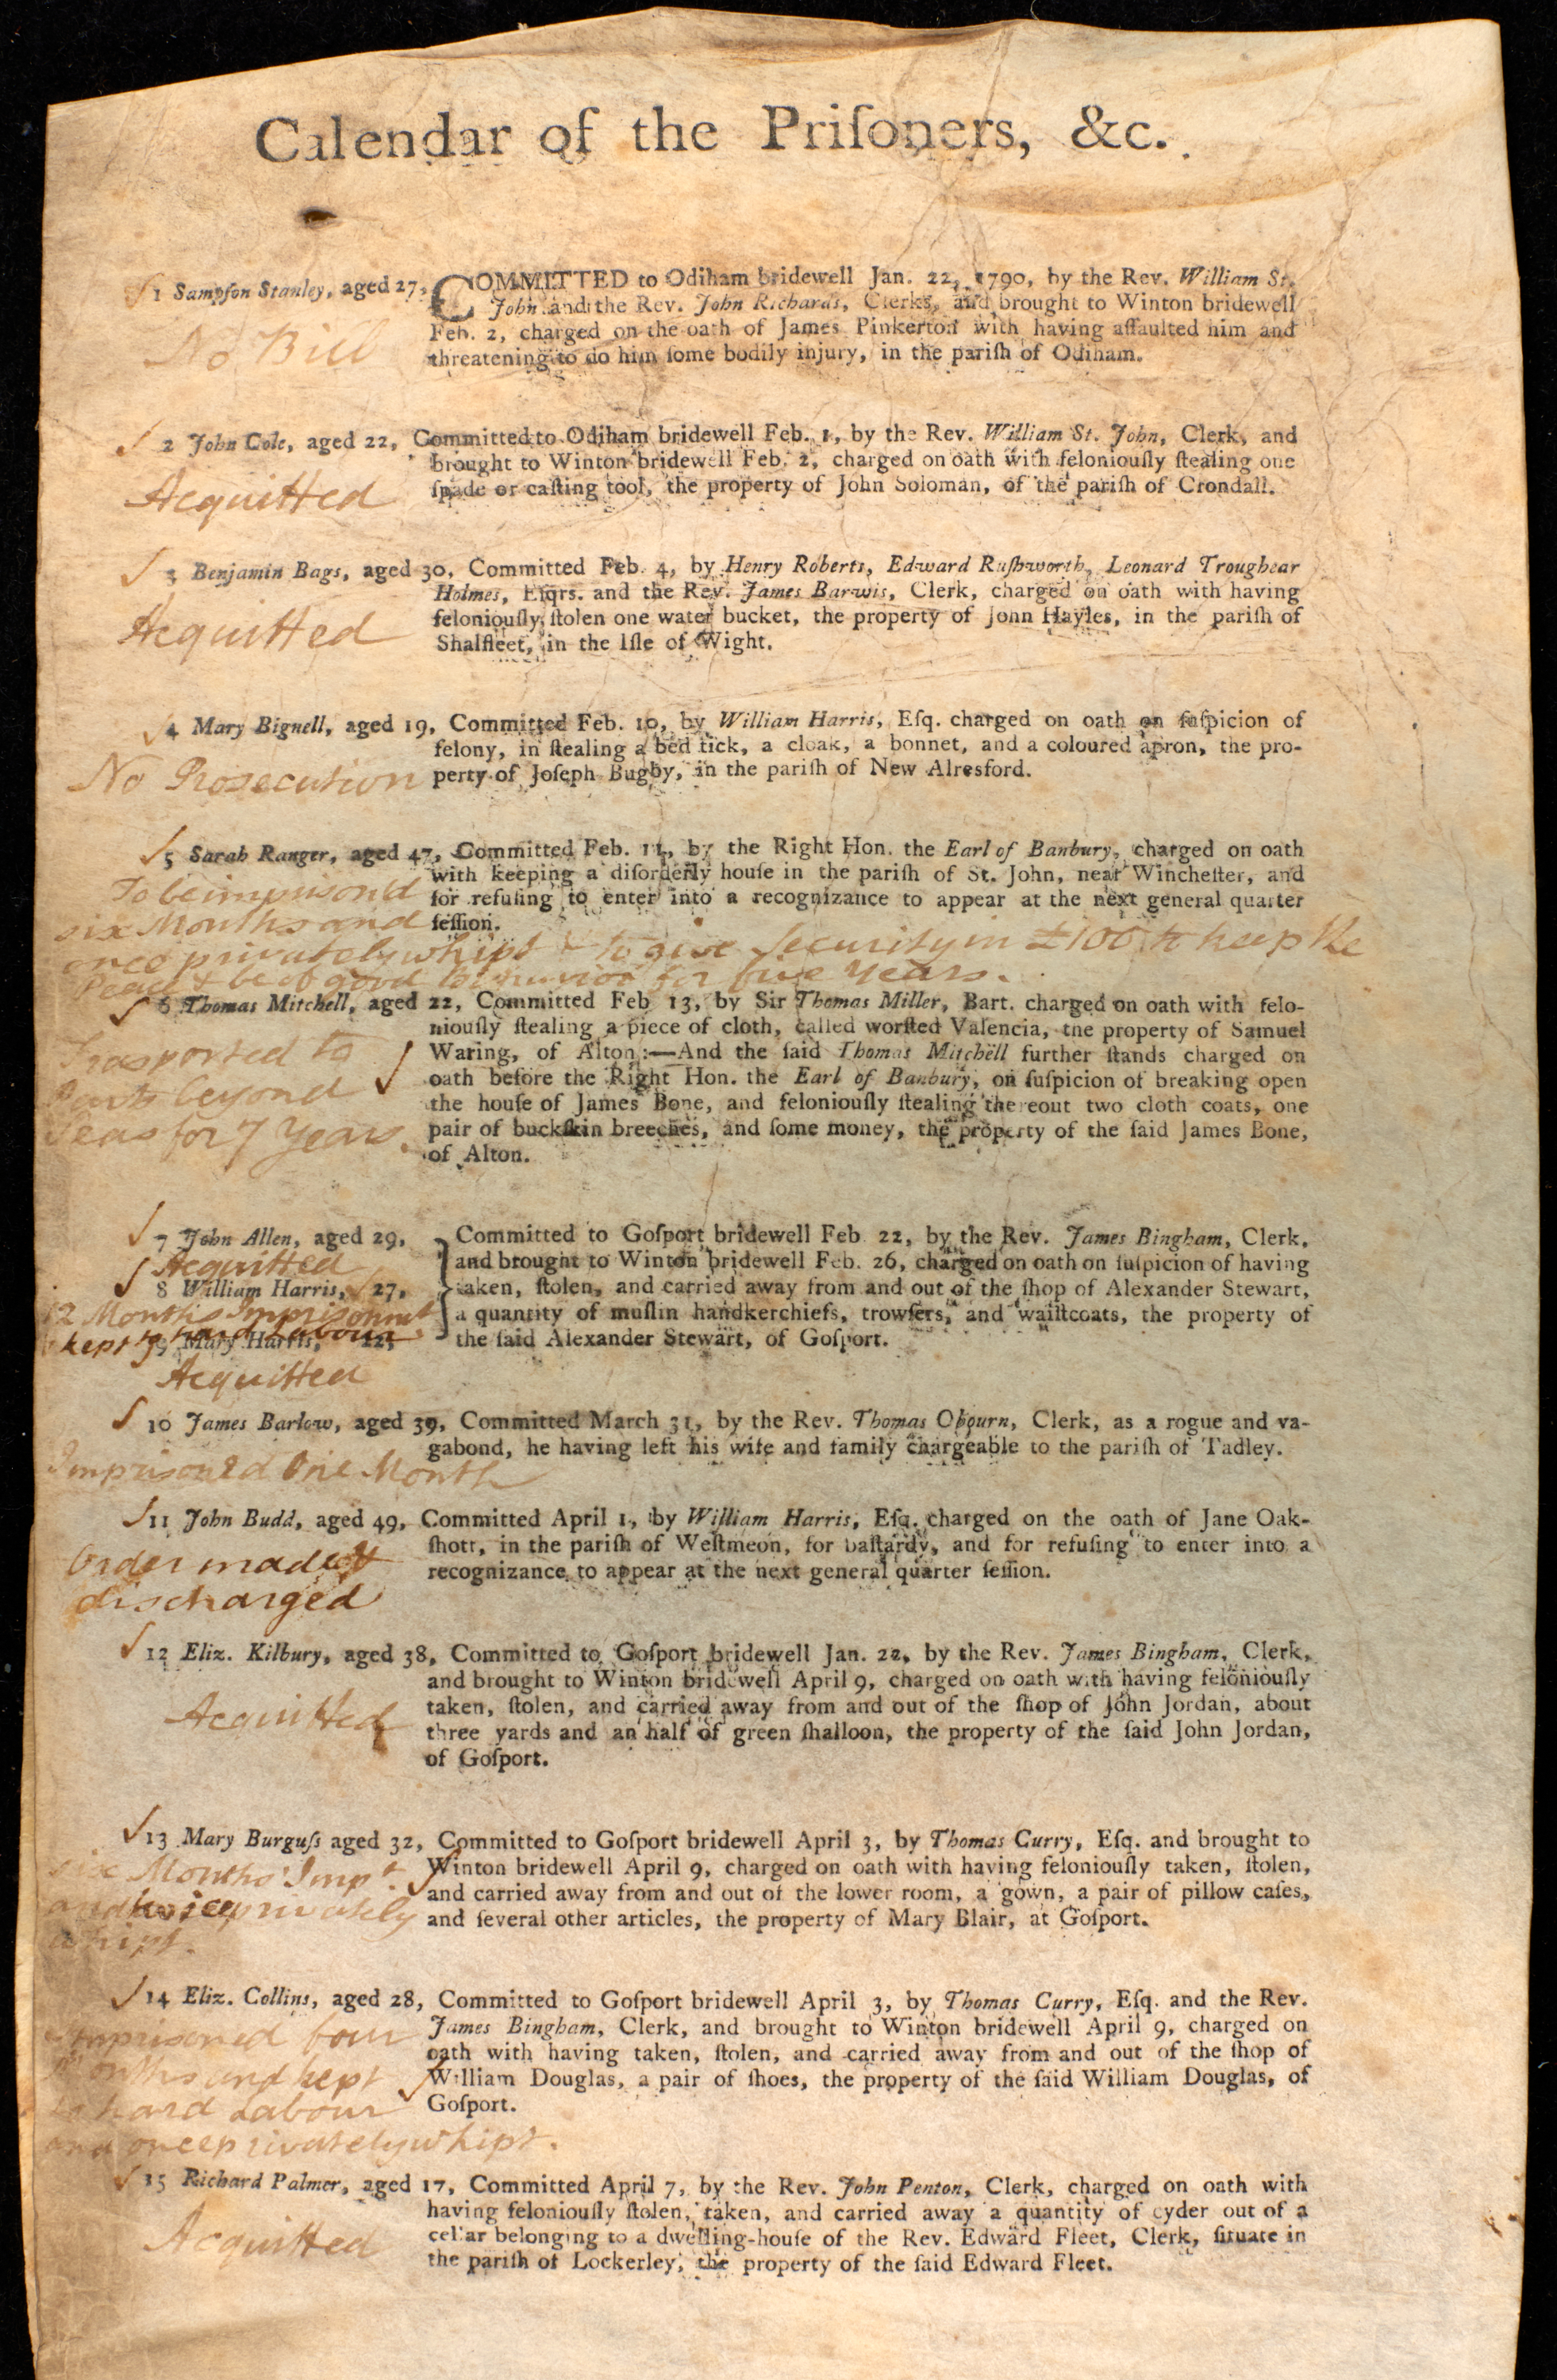 Calendar of the Priſoners, &c.
1 Sampſon Stanley, aged 27, COMMITTED to Odiham bridewell Jan. 22, 1790, by the Rev. William St.
John and the Rev. John Richards, Clerks, and brought to Winton bridewell
Feb. 2, charged on the oath of James Pinkerton with having aſſaulted him and
threatening to do him ſome bodily injury, in the pariſh of Odiham.
No Bill
2 John Cole, aged 22, Committed to Odiham bridewell Feb. 1, by the Rev. William St. John, Clerk, and
brought to Winton bridewell Feb. 2, charged on oath with feloniouſly ſtealing one
ſpade or caſting tool, the property of John Soloman, of the pariſh of Crondall.
Acquitted
3 Benjamin Bags, aged 30, Committed Feb. 4, by Henry Roberts, Edward Ruſhworth, Leonard Troughear
Holmes, Eſqrs. and the Rev. James Barwis, Clerk, charged on oath with having
feloniouſly ſtolen one water bucket, the property of John Hayles, in the pariſh of
Shalfleet, in the Iſle of Wight.
Acquitted
4 Mary Bignell, aged 19, Committed Feb. 10, by William Harris, Eſq. charged on oath on ſuſpicion of
felony, in ſtealing a bed tick, a cloak, a bonnet, and a coloured apron, the pro-
perty of Joſeph Bugby, in the pariſh of New Alresford.
No Prosecution
5 Sarah Ranger, aged 47, Committed Feb. 11, by the Right Hon. the Earl of Banbury, charged on oath
with keeping a diſorderly houſe in the pariſh of St. John, near Wincheſter, and
for refuſing to enter into a recognizance to appear at the next general quarter
ſeſſion.
To be imprison'd
six Months and
once privately whipt & to give Security in £100 to keep the
Peace & be of good behaviour for five Years.
6 Thomas Mitchell, aged 22, Committed Feb. 13, by Sir Thomas Miller, Bart. charged on oath with felo-
niouſly ſtealing a piece of cloth, called worſted Valencia, the property of Samuel
Waring, of Alton:—And the ſaid Thomas Mitchell further ſtands charged on
oath before the Right Hon. the Earl of Banbury, on ſuſpicion of breaking open
the houſe of James Bone, and feloniouſly ſtealing thereout two cloth coats, one
pair of buckſkin breeches, and ſome money, the property of the ſaid James Bone,
of Alton.
Trasported to
Parts beyond
Seas for 7 Years.
7 John Allen, aged 29,
Acquitted
8 William Harris, 27,
12 Months Imprisonmt
kept to hard Labour
9 Mary Harris, 12,
Acquitted
Committed to Goſport bridewell Feb. 22, by the Rev. James Bingham, Clerk,
and brought to Winton bridewell Feb. 26, charged on oath on ſuſpicion of having
taken, ſtolen, and carried away from and out of the ſhop of Alexander Stewart,
a quantity of muſlin handkerchiefs, trowſers, and waiſtcoats, the property of
the ſaid Alexander Stewart, of Goſport.
10 James Barlow, aged 39, Committed March 31, by the Rev. Thomas Obourn, Clerk, as a rogue and va-
gabond, he having left his wife and family chargeable to the pariſh of Tadley.
Imprison'd One Month
11 John Budd, aged 49, Committed April 1, by William Harris, Eſq. charged on the oath of Jane Oak-
ſhott, in the pariſh of Weſtmeon, for baſtardy, and for refuſing to enter into a
recognizance to appear at the next general quarter ſeſſion.
Order made &
discharged
12 Eliz. Kilbury, aged 38, Committed to Goſport bridewell Jan. 22, by the Rev. James Bingham, Clerk,
and brought to Winton bridewell April 9, charged on oath with having feloniouſly
taken, ſtolen, and carried away from and out of the ſhop of John Jordan, about
three yards and an half of green ſhalloon, the property of the ſaid John Jordan,
of Goſport.
Acquitted
13 Mary Burguſs aged 32, Committed to Goſport bridewell April 3, by Thomas Curry, Eſq. and brought to
Winton bridewell April 9, charged on oath with having feloniouſly taken, ſtolen,
and carried away from and out of the lower room, a gown, a pair of pillow caſes,
and ſeveral other articles, the property of Mary Blair, at Goſport.
six Months Impt.
and twice privately
whipt.
14 Eliz. Collins, aged 28, Committed to Goſport bridewell April 3, by Thomas Curry, Eſq. and the Rev.
James Bingham, Clerk, and brought to Winton bridewell April 9, charged on
oath with having taken, ſtolen, and carried away from and out of the ſhop of
William Douglas, a pair of ſhoes, the property of the ſaid William Douglas, of
Goſport.
Imprisoned four
Months and kept
to hard Labour
and once privately whipt.
15 Richard Palmer, aged 17, Committed April 7, by the Rev. John Penton, Clerk, charged on oath with
having feloniouſly ſtolen, taken, and carried away a quantity of cyder out of a
cellar belonging to a dwelling-houſe of the Rev. Edward Fleet, Clerk, ſituate in
the pariſh of Lockerley, the property of the ſaid Edward Fleet.
Acquitted